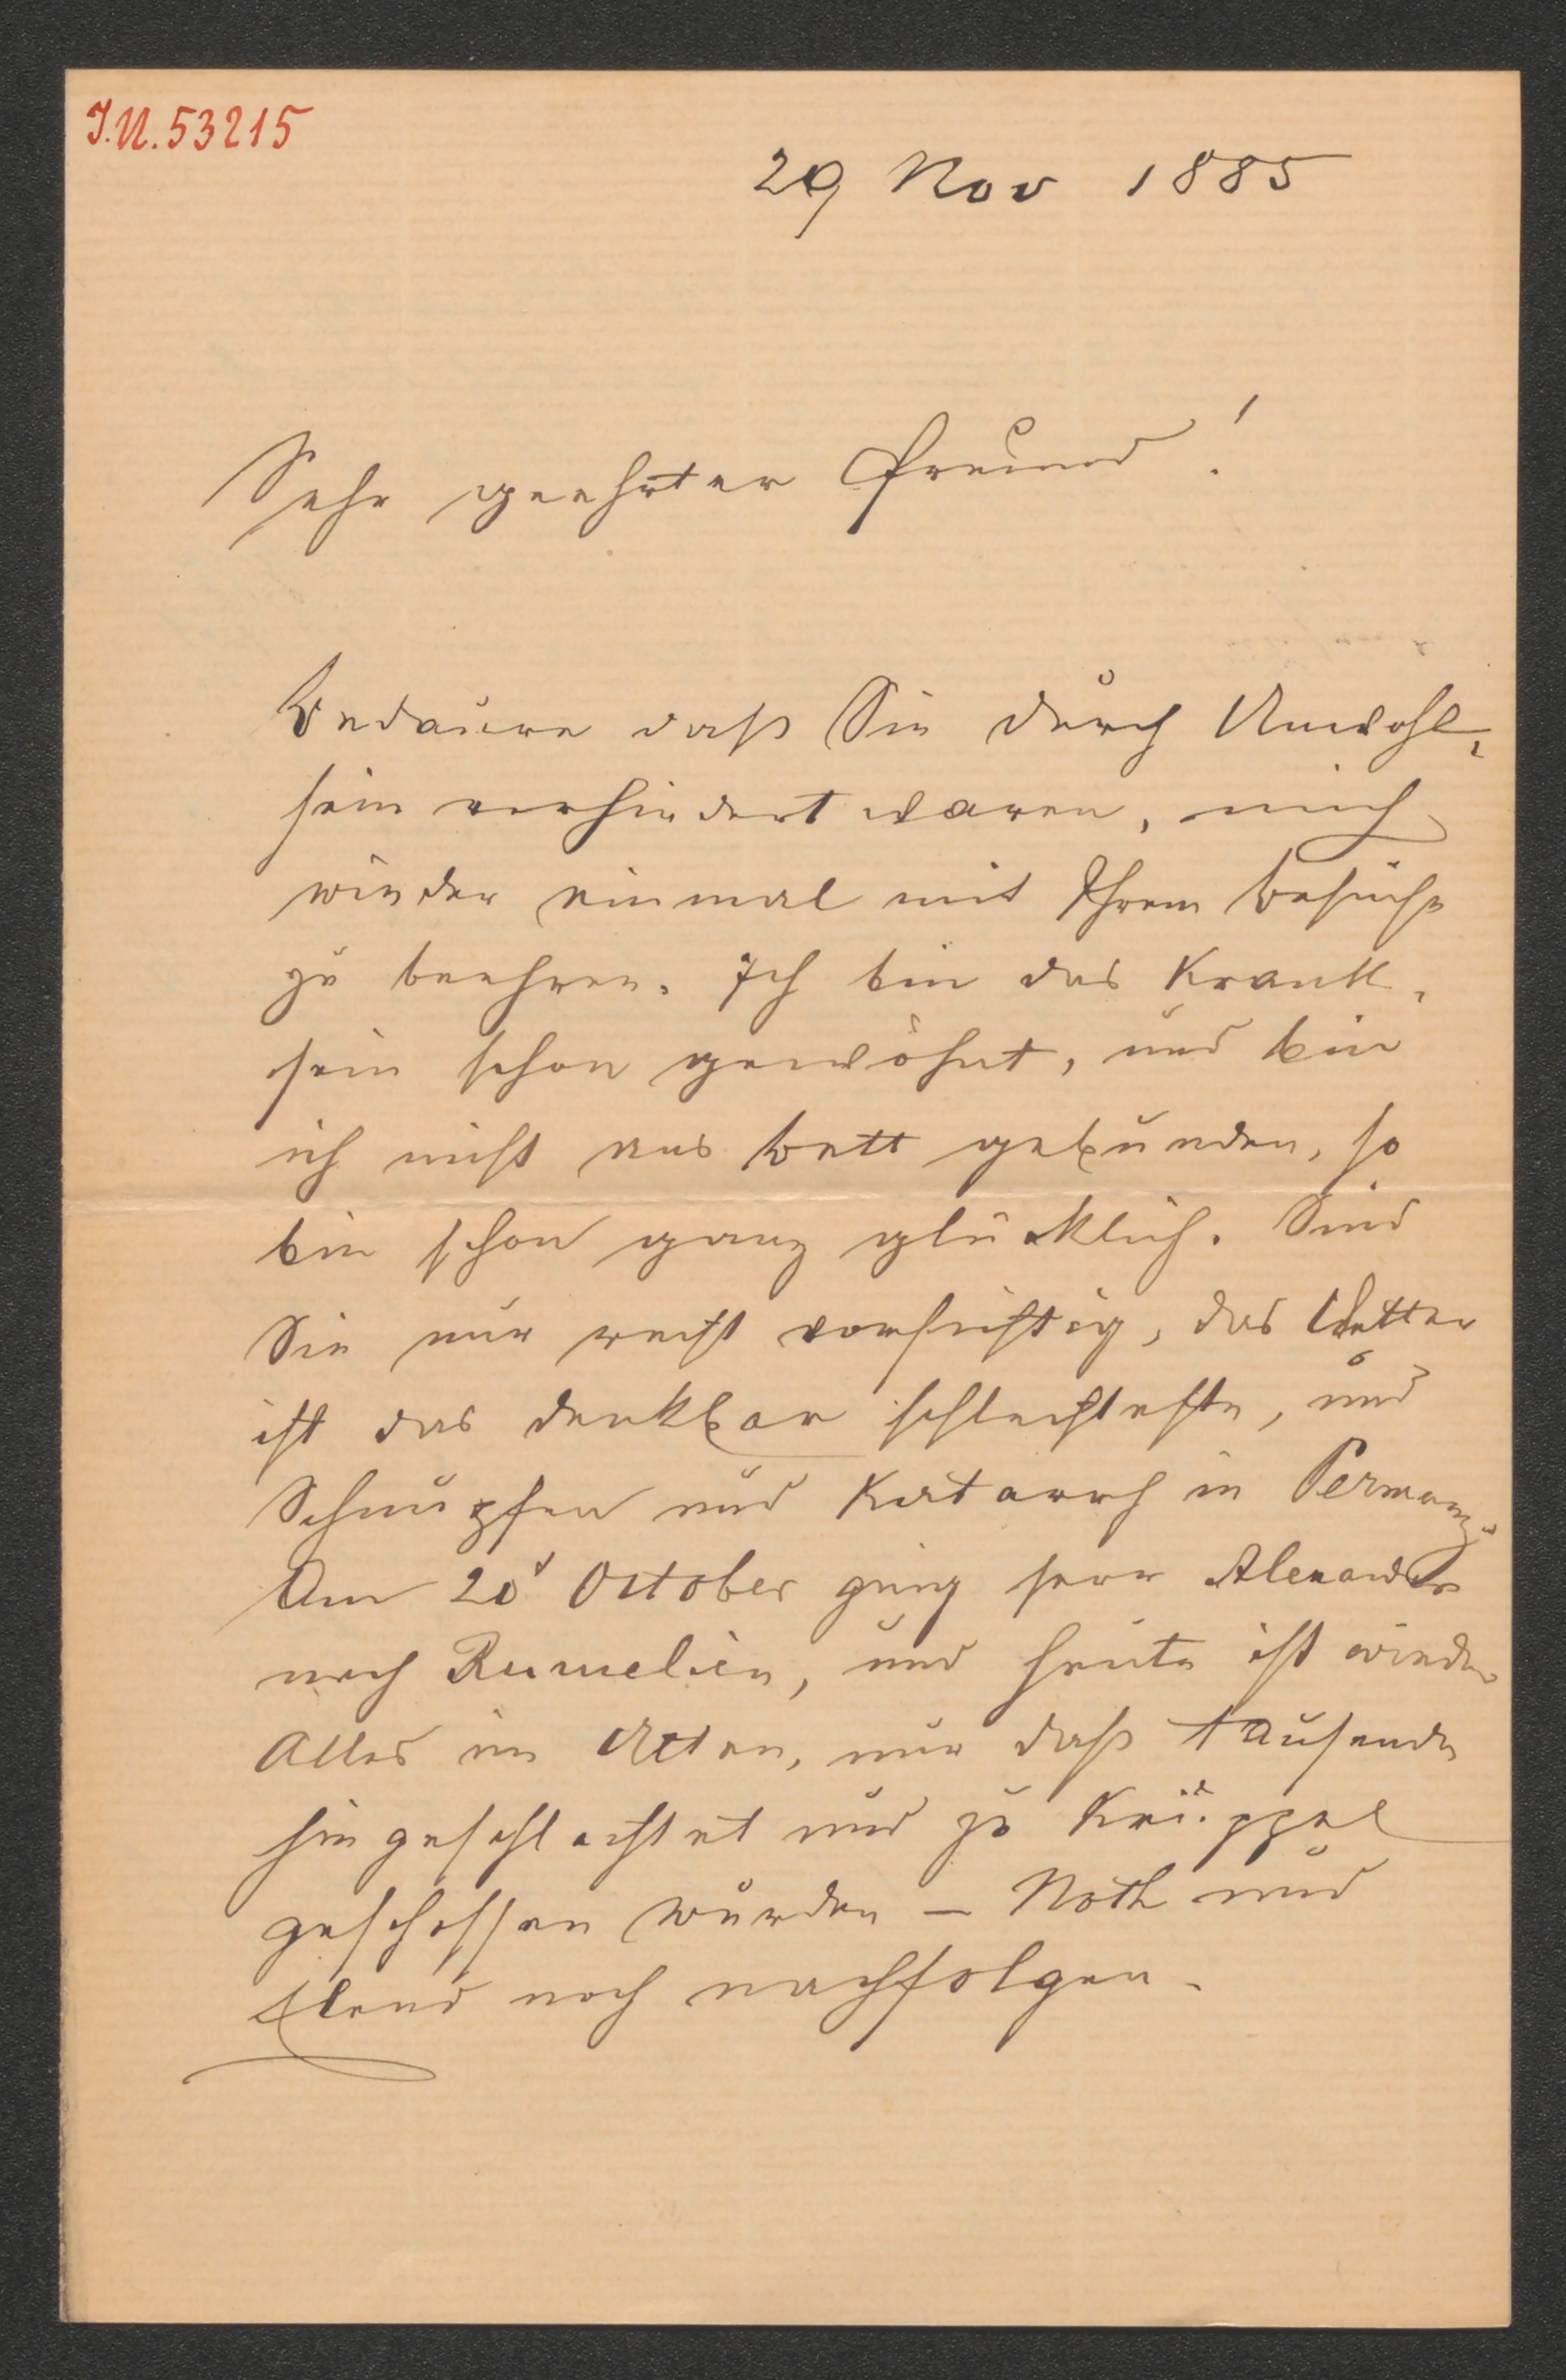 I.N. 53215
29 Nov 1885
Sehr geehrter Freund!
Bedauere daß Sie durch Unwohl-
sein verhindert waren, mich
wieder einmal mit Ihrem Besuche
zu beehren. Ich bin das Krank-
sein schon gewöhnt, und bin
ich nicht ans Bett gebunden, so
bin schon ganz glücklich. Sind
Sie nur recht vorsichtig, das Wetter
ist das denkbar schlechteste, und
Schnupfen und Katarrh in Permanz
Am 20t October ging Herr Alexander
nach Rumelien, und heute ist wieder
Alles im Alten, nur daß tausende
hingeschlachtet und zu Krüppel
geschossen wurden – Noth und
Elend noch nachfolgen.